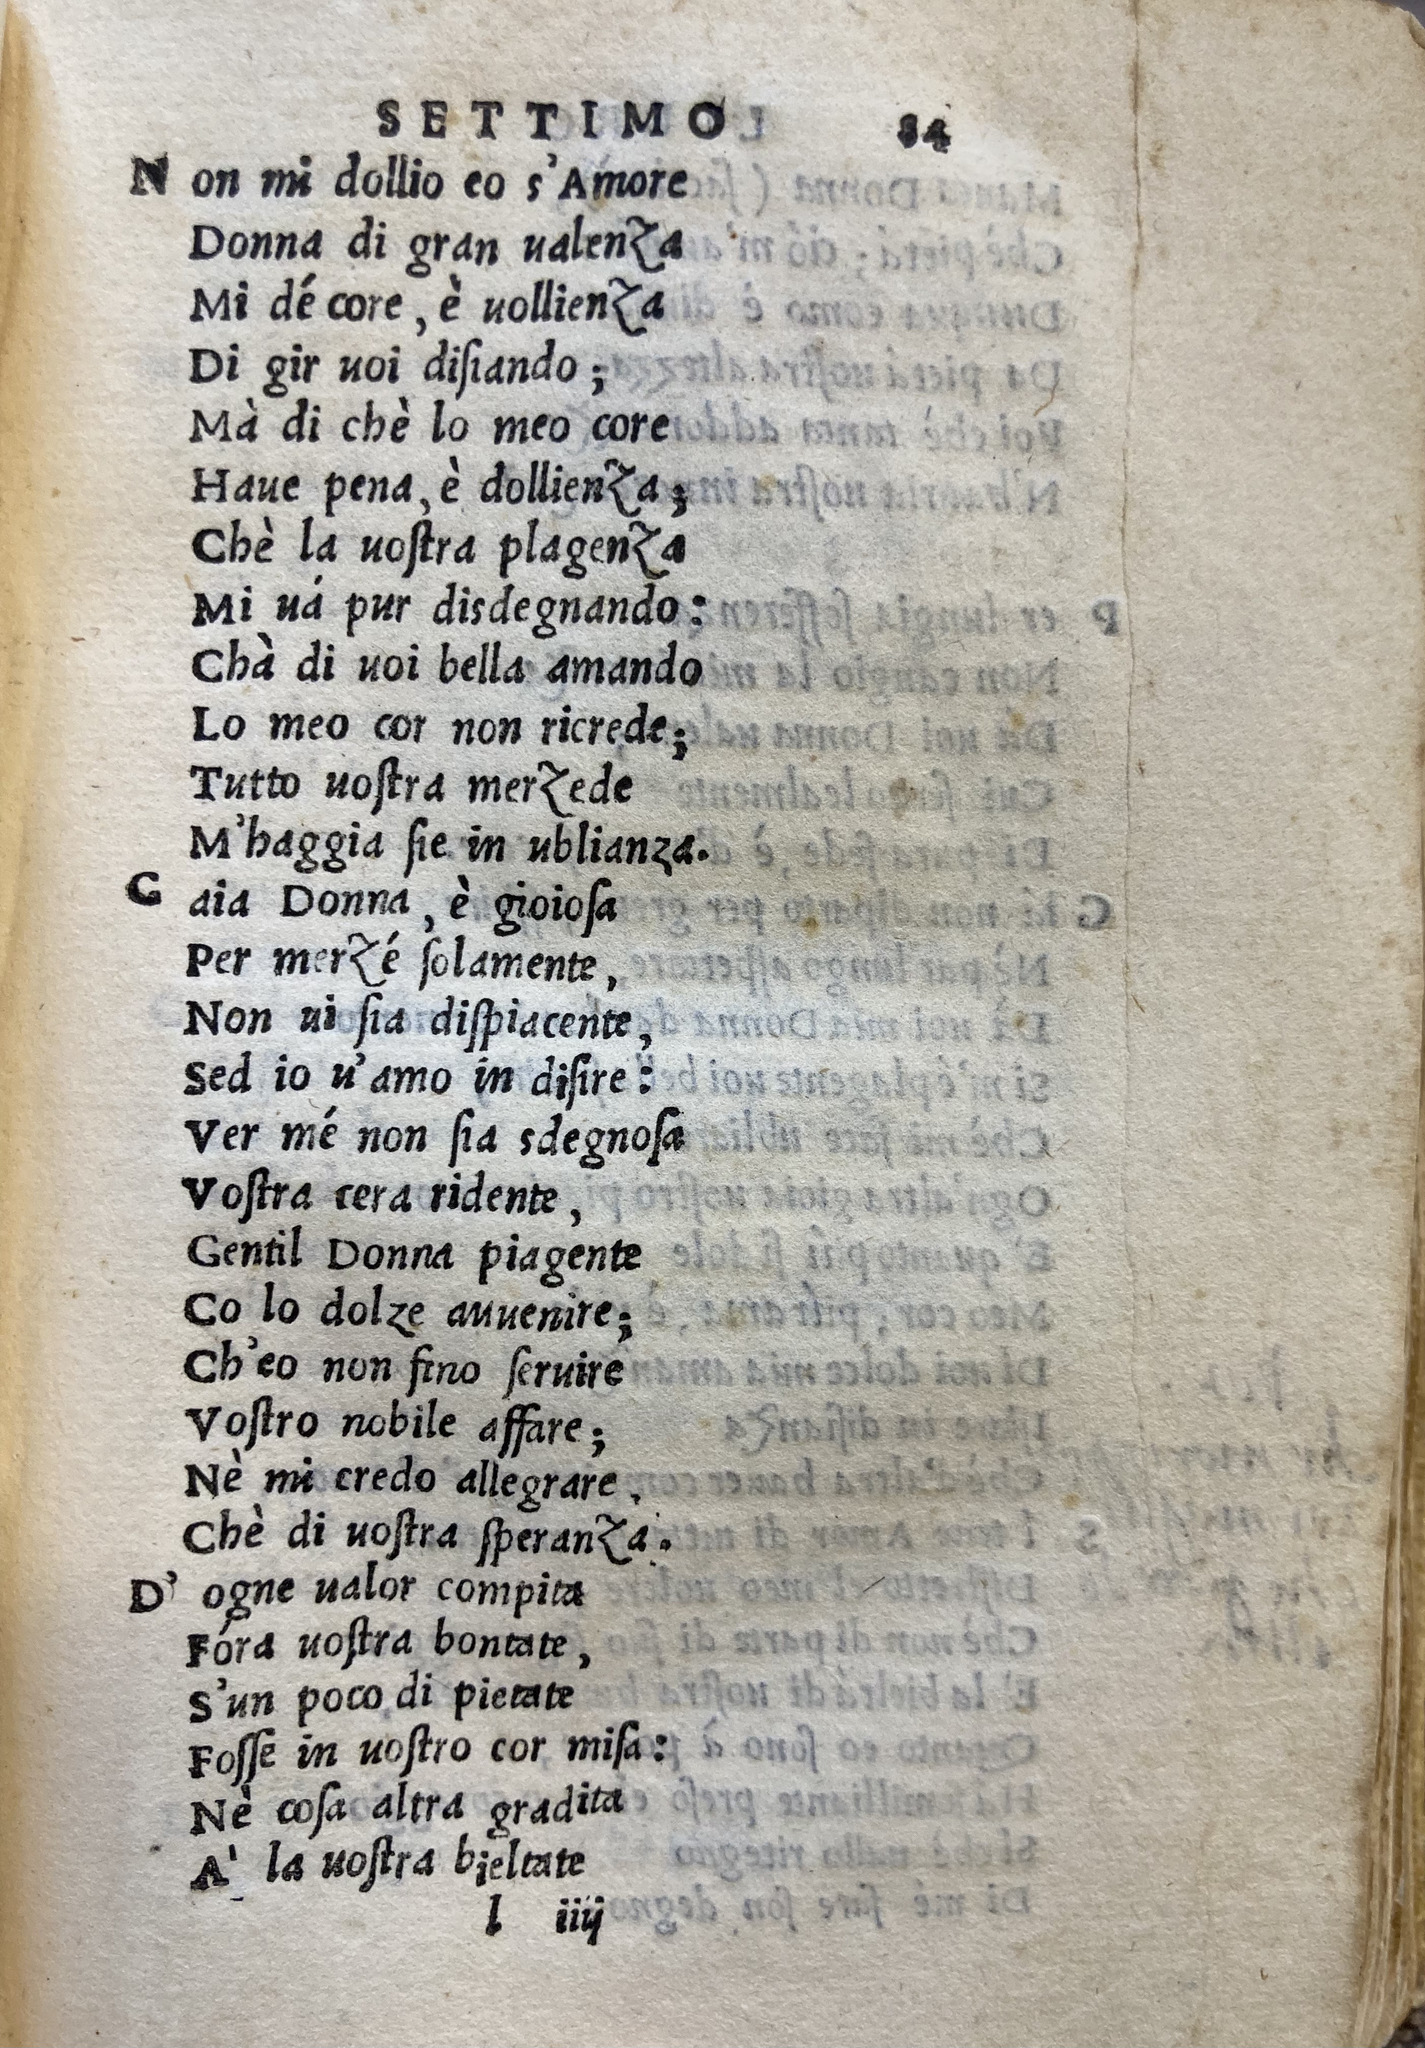 SETTIMO 84
Non mi dollio eo s'Amore
Donna di gran ualenza
Mi dé core, è uollienza
Di gir uoi diſiando;
Mà di chè lo meo core
Haue pena, è dollienza;
Chè la uoſtra plagenza
Mi uá pur disdegnando:
Chà di uoi bella amando
Lo meo cor non ricrede;
Tutto uoſtra merzede
M'haggia ſie in ublianza.
Gaia Donna, è gioioſa
Per merzé ſolamente,
Non ui ſia diſpiacente,
Sed io u'amo in diſire:
Ver mé non ſia sdegnoſa
Voſtra cera ridente,
Gentil Donna piagente
Co lo dolze auuenire;
Ch'eo non fino ſeruire
Voſtro nobile affare;
Nè mi credo allegrare,
Chè di uoſtra ſperanza.
D'ogne ualor compita
Fóra uoſtra bontate,
S'un poco di pietate
Foſſe in uoſtro cor miſa:
Nè coſa altra gradita
A' la uoſtra bieltate
l iiij